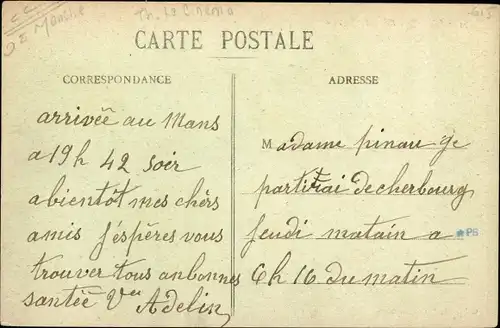 Th. Le Cinema
CARTE POSTALE
CORRESPONDANCE
arrivëe au Mans
a 19h 42 soir
abientôt mes chèrs
amis j'éspères vous
trouver tous anbonnes
santée Vve Adelin
ADRESSE
Madame pinau ge
partirai de cherbourg
jeudi matain a
6h 16 du matin
PS